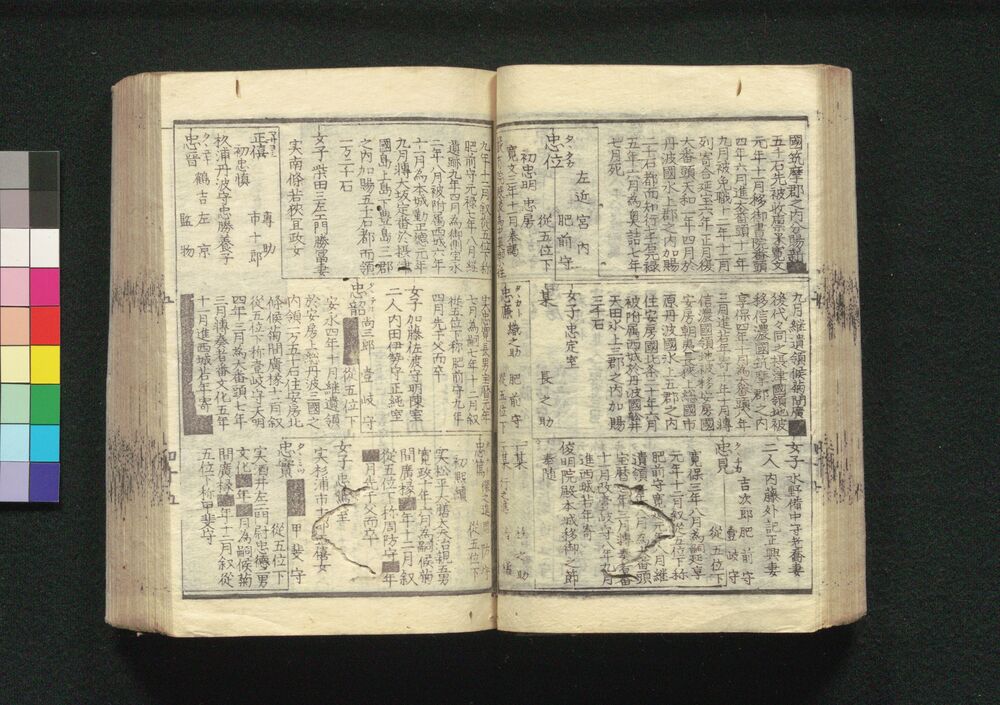 國筑摩郡之內分賜
五十石先被收廩米寬文
元年十一月移御書院番頭
四年十月進大番頭十一年
九月被免職十二年十二月
列寄合延宝六年正月復
大番頭天和二年四月於
丹波國水上郡之内加賜
二千石都而知行七千石元禄
五年六月為奥詰七年
七月死
忠位
左近 宮内
肥前守
從五位下
初忠明 忠房
寬文三年十二月奉謁
九月継遺領候菊間廣
後代々同之摂津國領地被
移信濃國筑摩郡之内
享保四年十月為大番頭八年
三月進若年寄十年十月轉
信濃國領地被移安房國
安房朝夷長狭上総國市
原丹波國水上五郡之内
住安房國北条二十年六月
被附属西城於丹波國船井
天田水上三郡之内加賜
三千石
女子 忠定室
某 長之助
忠廉 織之助 肥前守
從五位下
女子 水野備中守忠喬妻
二人 内藤外記正興妻
忠見
吉次郎 肥前守
壹岐守
從五位下
寬保三年八月為嗣延享
元年十二月叙從五位下称
肥前守寬
遺領
進西城若年寄
十月改壹岐守八年九月
俊明院殿本城移御之節
奉随
某
九年十二月叙從五位下称
肥前守元禄七年八月経
遺跡九年四月為御側宝永
二年八月被附属西城六年
十一月為本城勤正德元年
九月轉大坂定番於摂津
國島上島下豊島三郡
之内加賜五千石都而領
一万二千石
女子 柴田三左エ門勝富妻
実南條若狭宜政女
正僖
専助
市十郎
初忠慎
杦浦丹波守忠勝養子
忠晉
鶴吉 左京
監物
七月為嗣七年十二月叙
從五位下称肥前守九年
四月先于父而卒
女子 加藤佐渡守明陳室
二人 内田伊勢守正純室
忠韶
尚三郎 壹岐守
從五位下
安永四年十月継遺領
於安房上総丹波三國之
内領一万五千石住安房北
條候菊間廣椽十二月叙
從五位下称壹岐守天明
四年三月為大番頭七年
三月轉奏者番文化五年
十二月進西城若年寄
忠篤
從五位下
初熙續
実松平大膳大夫治親五男
寬政十年十一月為嗣候菊
間廣椽年十二月叙
從五位下称周防守年
月先于父而卒
女子 忠篤室
実杉浦市十郎正僖女
忠實
甲斐守
從五位下
実酒井左エ門尉忠德二男
文化年月為嗣候菊
間廣椽年十二月叙從
五位下称甲斐守